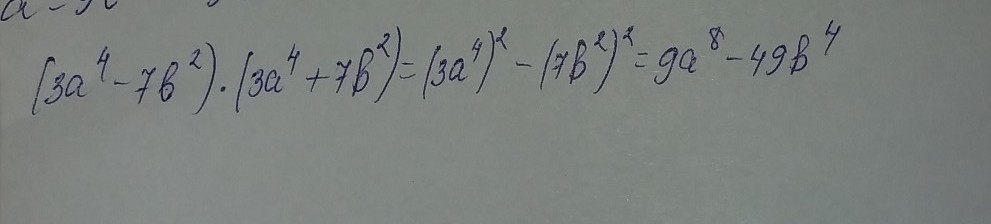 (3a⁴ - 7b²) · (3a⁴ + 7b²) = (3a⁴)² - (7b²)² = 9a⁸ - 49b⁴